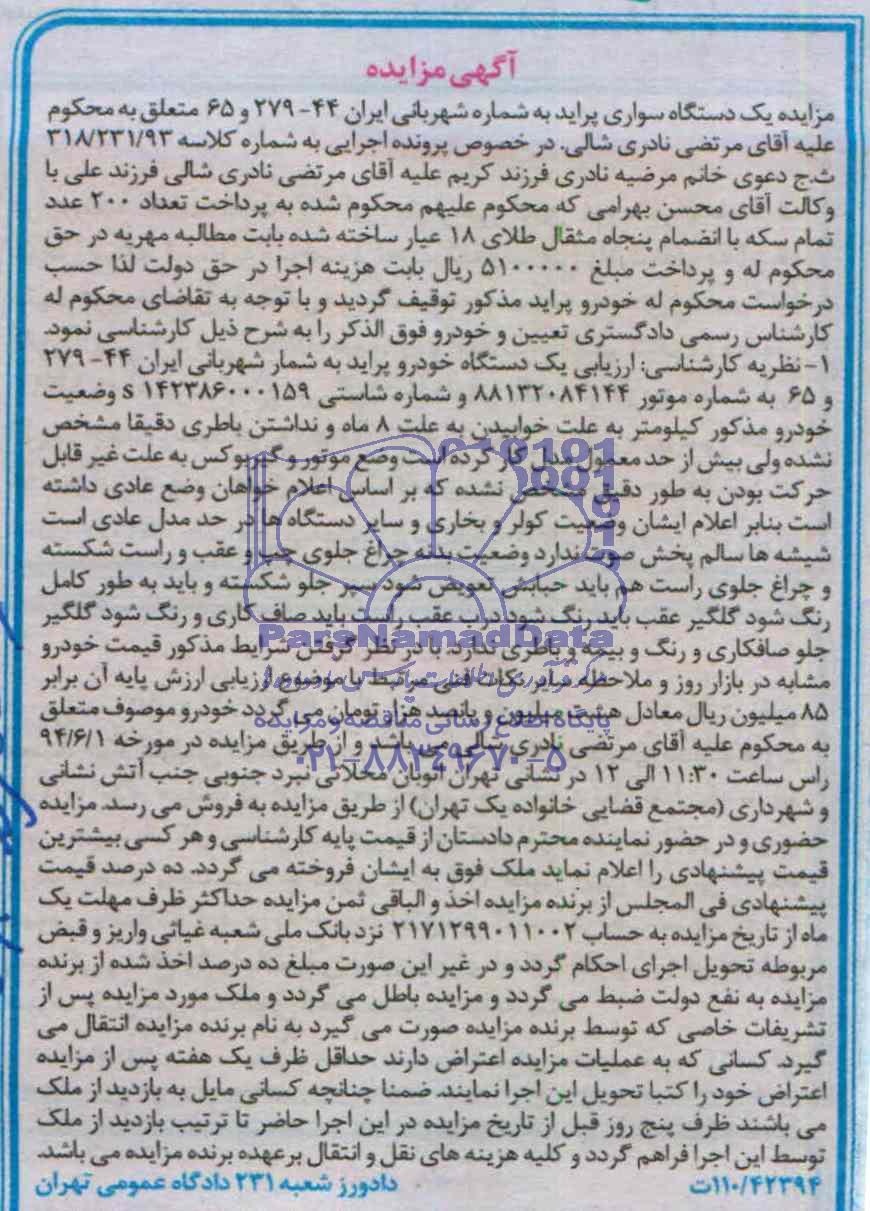 آگهی مزایده
مزایده یک دستگاه سواری پراید به شماره شهربانی ایران ۴۴- ۲۷۹ و ۶۵ متعلق به محکوم
علیه آقای مرتضی نادری شالی. در خصوص پرونده اجرایی به شماره کلاسه ۳۱۸/۲۳۱/۹۳
ث.ج دعوی خانم مرضیه نادری فرزند کریم علیه آقای مرتضی نادری شالی فرزند علی با
وکالت آقای محسن بهرامی که محکوم علیهم محکوم شده به پرداخت تعداد ۲۰۰ عدد
تمام سکه با انضمام پنجاه مثقال طلای ۱۸ عیار ساخته شده بابت مطالبه مهریه در حق
محکوم له و پرداخت مبلغ ۵۱۰۰۰۰۰ ریال بابت هزینه اجرا در حق دولت لذا حسب
درخواست محکوم له خودرو پراید مذکور توقیف گردید و با توجه به تقاضای محکوم له
کارشناس رسمی دادگستری تعیین و خودرو فوق الذکر را به شرح ذیل کارشناسی نمود.
۱- نظریه کارشناسی: ارزیابی یک دستگاه خودرو پراید به شمار شهربانی ایران ۴۴- ۲۷۹
و ۶۵ به شماره موتور ۸۸۱۳۲۰۸۴۱۴۴ و شماره شاستی s ۱۴۲۳۸۶۰۰۰۱۵۹ وضعیت
خودرو مذکور کیلومتر به علت خوابیدن به علت ۸ ماه و نداشتن باطری دقیقا مشخص
نشده ولی بیش از حد معمول مدل کار کرده است وضع موتور و گیربوکس به علت غیر قابل
حرکت بودن به طور دقیق مشخص نشده که بر اساس اعلام خواهان وضع عادی داشته
است بنابر اعلام ایشان وضعیت کولر و بخاری و سایر دستگاه ها در حد مدل عادی است
شیشه ها سالم پخش صوت ندارد وضعیت بدنه چراغ جلوی چپ و عقب و راست شکسته
و چراغ جلوی راست هم باید حبابش تعویض شود سپر جلو شکسته و باید به طور کامل
رنگ شود گلگیر عقب باید رنگ شود درب عقب راست باید صاف کاری و رنگ شود گلگیر
جلو صافکاری و رنگ و بیمه و باطری ندارد. با در نظر گرفتن شرایط مذکور قیمت خودرو
مشابه در بازار روز و ملاحظه سایر نکات فنی مرتبط با موضوع ارزیابی ارزش پایه آن برابر
۸۵ میلیون ریال معادل هشت میلیون و پانصد هزار تومان می گردد خودرو موصوف متعلق
به محکوم علیه آقای مرتضی نادری شالی می باشد و از طریق مزایده در مورخه ۹۴/۶/۱
راس ساعت ۱۱:۳۰ الی ۱۲ در نشانی تهران اتوبان محلاتی نبرد جنوبی جنب آتش نشانی
و شهرداری (مجتمع قضایی خانواده یک تهران) از طریق مزایده به فروش می رسد. مزایده
حضوری و در حضور نماینده محترم دادستان از قیمت پایه کارشناسی و هر کسی بیشترین
قیمت پیشنهادی را اعلام نماید ملک فوق به ایشان فروخته می گردد. ده درصد قیمت
پیشنهادی فی المجلس از برنده مزایده اخذ و الباقی ثمن مزایده حداکثر ظرف مهلت یک
ماه از تاریخ مزایده به حساب ۲۱۷۱۲۹۹۰۱۱۰۰۲ نزد بانک ملی شعبه غیاثی واریز و قبض
مربوطه تحویل اجرای احکام گردد و در غیر این صورت مبلغ ده درصد اخذ شده از برنده
مزایده به نفع دولت ضبط می گردد و مزایده باطل می گردد و ملک مورد مزایده پس از
تشریفات خاصی که توسط برنده مزایده صورت می گیرد به نام برنده مزایده انتقال می
گیرد. کسانی که به عملیات مزایده اعتراض دارند حداقل ظرف یک هفته پس از مزایده
اعتراض خود را کتبا تحویل این اجرا نمایند. ضمنا چنانچه کسانی مایل به بازدید از ملک
می باشند ظرف پنج روز قبل از تاریخ مزایده در این اجرا حاضر تا ترتیب بازدید از ملک
توسط این اجرا فراهم گردد و کلیه هزینه های نقل و انتقال برعهده برنده مزایده می باشد.
۱۱۰/۴۲۳۹۴ت دادورز شعبه ۲۳۱ دادگاه عمومی تهران
ParsNamadData
پایگاه اطلاع رسانی مناقصه و مزایده
۰۲۱-۸۸۳۴۹۶۷۰-۵